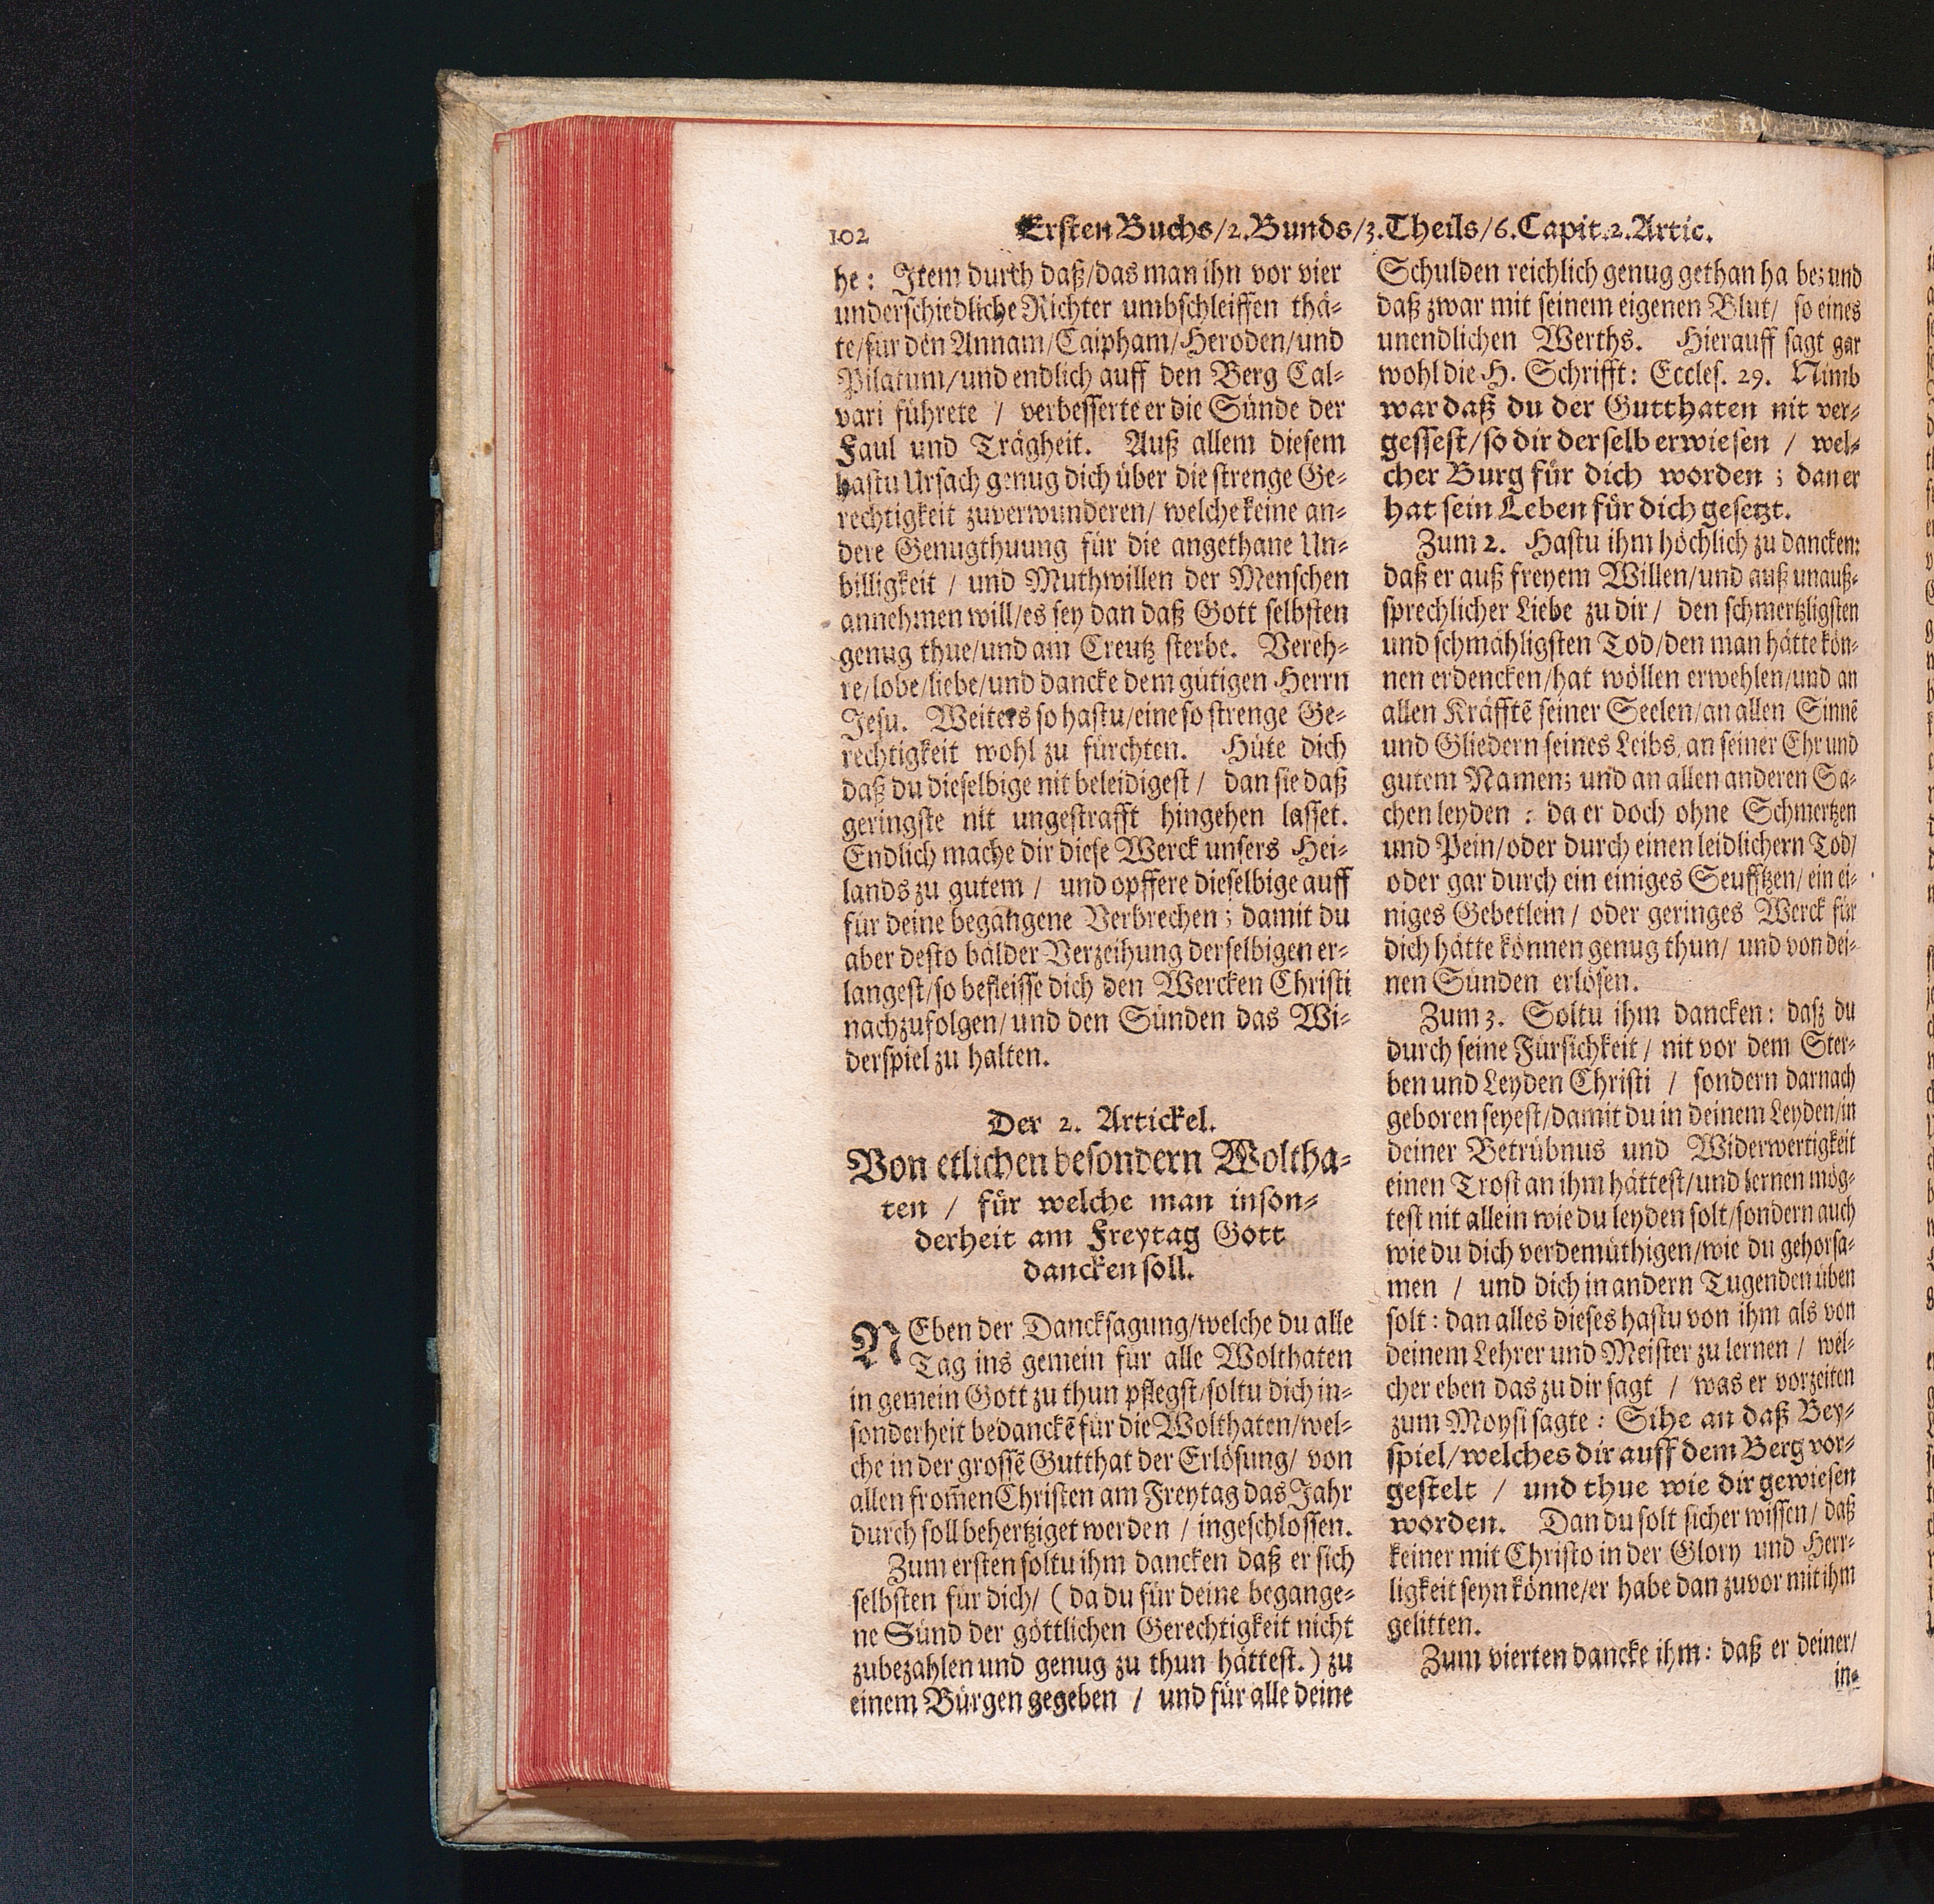 102 Ersten Buchs/2.Bunds/3.Theils/6.Capit.2.Artic.
he: Item durch daß/das man ihn vor vier
underschiedliche Richter umbschleiffen thä-
te/für den Annam/Caipham/Heroden/und
Pilatum/und endlich auff den Berg Cal-
vari führete / verbesserte er die Sünde der
Faul und Trägheit. Auß allem diesem
hastu Ursach genug dich über die strenge Ge-
rechtigkeit zuverwunderen/ welche keine an-
dere Genugthuung für die angethane Un-
billigkeit / und Muthwillen der Menschen
annehmen will/es sey dan daß Gott selbsten
genug thue/und am Creutz sterbe. Vereh-
re/lobe/liebe/und dancke dem gütigen Herrn
Jesu. Weiters so hastu/eine so strenge Ge-
rechtigkeit wohl zu fürchten. Hüte dich
daß du dieselbige nit beleidigest / dan sie daß
geringste nit ungestrafft hingehen lasset.
Endlich mache dir diese Werck unsers Hei-
lands zu gutem / und opffere dieselbige auff
für deine begangene Verbrechen; damit du
aber desto bälder Verzeihung derselbigen er-
langest/so befleisse dich den Wercken Christi
nachzufolgen/ und den Sünden das Wi-
derspiel zu halten.
Der 2. Artickel.
Von etlichen besondern Woltha-
ten / für welche man inson-
derheit am Freytag Gott
dancken soll.
NEben der Dancksagung/welche du alle
Tag ins gemein für alle Wolthaten
in gemein Gott zu thun pflegst/soltu dich in-
sonderheit bedanckē für die Wolthaten/wel-
che in der grossē Gutthat der Erlösung/ von
allen from̃en Christen am Freytag das Jahr
durch soll behertziget werden / ingeschlossen.
Zum ersten soltu ihm dancken daß er sich
selbsten für dich/ ( da du für deine begange-
ne Sünd der göttlichen Gerechtigkeit nicht
zubezahlen und genug zu thun hättest.) zu
einem Bürgen gegeben / und für alle deine
Schulden reichlich genug gethan ha be; und
daß zwar mit seinem eigenen Blut/ so eines
unendlichen Werths. Hierauff sagt gar
wohl die H. Schrifft: Eccles. 29. Nimb
war daß du der Gutthaten nit ver-
gessest/so dir derselb erwiesen / wel-
cher Burg für dich worden ; dan er
hat sein Leben für dich gesetzt.
Zum 2. Hastu ihm höchlich zu dancken:
daß er auß freyem Willen/und auß unauß-
sprechlicher Liebe zu dir / den schmertzligsten
und schmähligsten Tod/den man hätte kön-
nen erdencken/hat wöllen erwehlen/und an
allen Kräfftē seiner Seelen/an allen Sinnē
und Gliedern seines Leibs, an seiner Ehr und
gutem Namen; und an allen anderen Sa-
chen leyden : da er doch ohne Schmertzen
und Pein/oder durch einen leidlichern Tod/
oder gar durch ein einiges Seufftzen/ ein ei-
niges Gebetlein / oder geringes Werck für
dich hätte können genug thun/ und von dei-
nen Sünden erlösen.
Zum 3. Soltu ihm dancken: daß du
durch seine Fürsichkeit / nit vor dem Ster-
ben und Leyden Christi / sondern darnach
geboren seyest/damit du in deinem Leyden/in
deiner Betrübnus und Widerwertigkeit
einen Trost an ihm hättest/und lernen mög-
test nit allein wie du leyden solt/sondern auch
wie du dich verdemüthigen/wie du gehorsa-
men / und dich in andern Tugenden üben
solt : dan alles dieses hastu von ihm als von
deinem Lehrer und Meister zu lernen / wel-
cher eben das zu dir sagt / was er vorzeiten
zum Moysi sagte : Sihe an daß Bey-
spiel/welches dir auff dem Berg vor-
gestelt / und thue wie dir gewiesen
worden. Dan du solt sicher wissen/ daß
keiner mit Christo in der Glory und Herr-
ligkeit seyn könne/er habe dan zuvor mit ihm
gelitten.
Zum vierten dancke ihm : daß er deiner/
in-